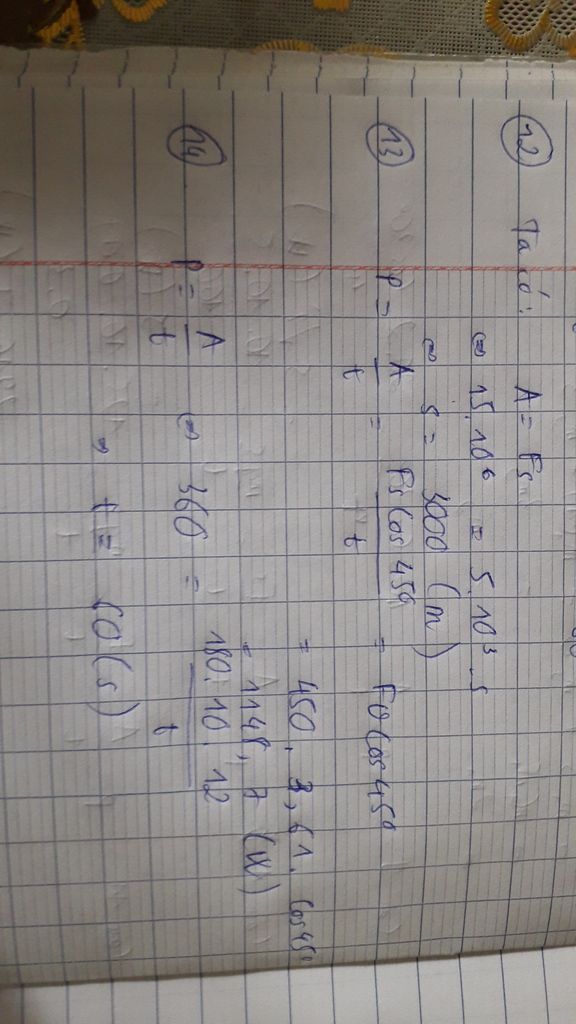 12 Ta có: A = Fs
⇔ 15.10⁶ = 5.10³.s
⇔ s = 3000 (m)
13 P = A/t = Fs cos 45⁰/t = Fv cos 45⁰
= 450. 3,61. cos 45⁰
= 1148,7 (W)
14 P = A/t ⇔ 360 = 180.10.12/t
⇒ t = 60 (s)